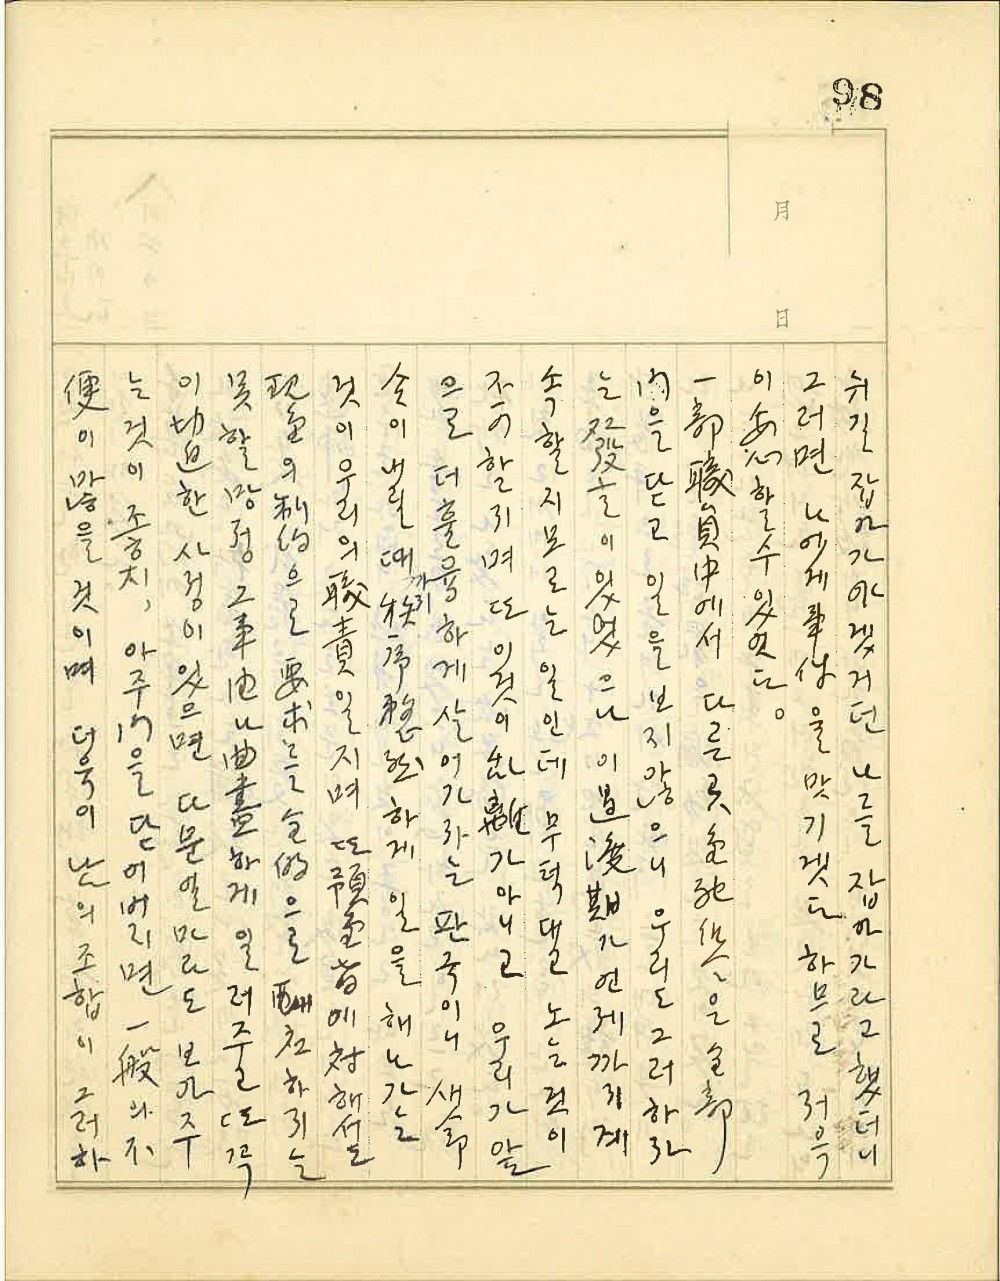 98
月
日
쉬길 잡아가야겠거던 나를 잡아가라고 했더니
그러면 나에게 事件을 맛기겟다 하므로 저윽
이 安心할수있엇다。
一部 職員中에서 다른 곳 은 全部
門을 닫고 일을 보지않으니 우리도 그러하자
는 이 있었으나 이 過渡期가 언제까지 계
속할지 모르는 일인데 무턱대고 노는 것이
不可할지며 또 이것이 가아니고 우리가 앞
으로 더 훌륭하게 살어가자는 판국이니 새 命
令이 내릴 때까지 秩序整然하게 일을 해나가는
것이 우리의 職責일지며 또 預金者에 対해서도
現金의 制約으로 要求는 全的으로 하지는
못할망정 그 事由나 曲盡하게 일러주고 또 꼭
이 切迫한 사정이 있으면 다문얼마라도 보아주
는것이 좋치, 아주 門을 닫어버리면 一般의 不
便이 많을 것이며 더욱이 남의 조합이 그러하